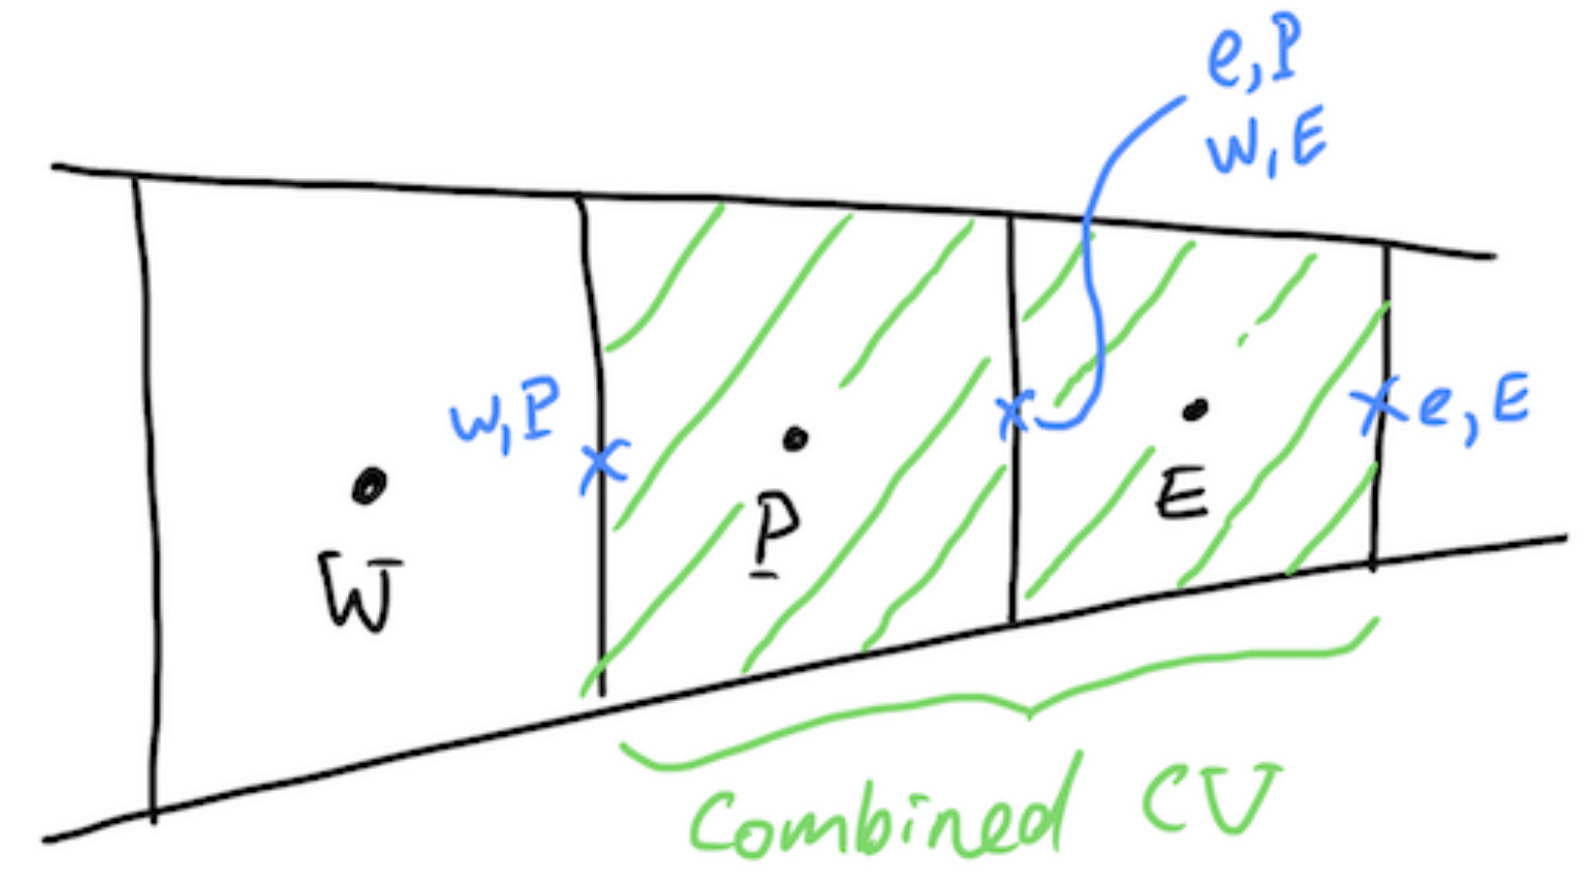 e,P
w,E
w,P
e,E
W
P
E
Combined CV